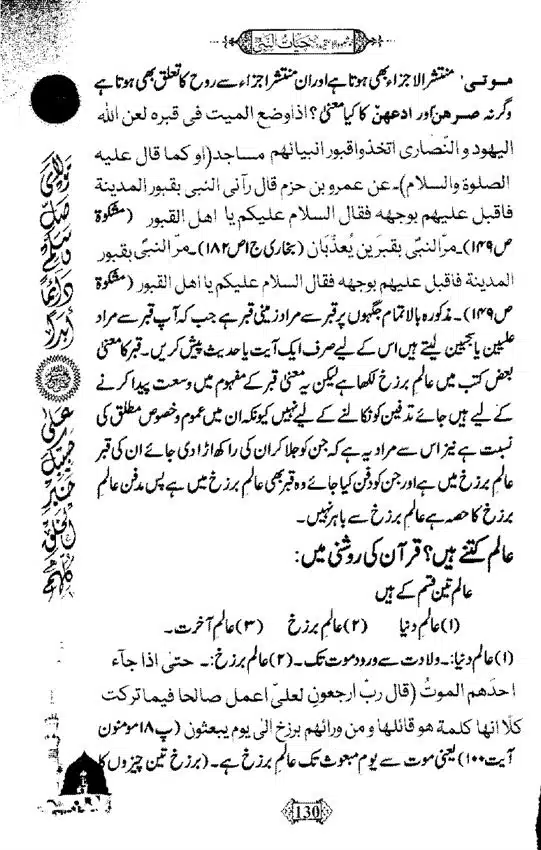 حیات النبی
موتی' منتشر الاجزاء بھی ہوتا ہے اور ان منتشر اجزاء سے روح کا تعلق بھی ہوتا ہے
وگرنہ صرھن اور ادعھن کا کیا معنیٰ؟ اذا وضع المیت فی قبرہ لعن اللہ
الیھود والنّصاری اتخذوا قبور انبیائھم مساجد (او کما قال علیہ
الصلوۃ والسلام)۔ عن عمرو بن حزم قال رآنی النبی بقبور المدینة
فاقبل علیھم بوجھہ فقال السلام علیکم یا اھل القبور (مشکوٰۃ
ص۱۴۹)۔ مرّ النبیّ بقبرین یُعذّبان (بخاری ج۱ص۱۸۲)۔ مرّ النبیّ بقبور
المدینة فاقبل علیھم بوجھہ فقال السلام علیکم یا اھل القبور (مشکوٰۃ
ص۱۴۹)۔ مذکورہ بالا تمام جگہوں پر قبر سے مراد زمینی قبر ہے جب کہ آپ قبر سے مراد
علیین یا سجین لیتے ہیں اس کے لیے صرف ایک آیت یا حدیث پیش کریں۔ قبر کا معنیٰ
بعض کتب میں عالم برزخ لکھا ہے لیکن یہ معنیٰ قبر کے مفہوم میں وسعت پیدا کرنے
کے لیے ہیں جائے تدفین کو نکالنے کے لیے نہیں کیونکہ ان میں عموم و خصوص مطلق کی
نسبت ہے نیز اس سے مراد یہ ہے کہ جن کو جلا کر ان کی راکھ اڑا دی جائے ان کی قبر
عالم برزخ میں ہے اور جن کو دفن کیا جائے وہ قبر بھی عالم برزخ میں ہے پس مدفن عالم
برزخ کا حصہ ہے عالم برزخ سے باہر نہیں۔
عالم کتنے ہیں؟ قرآن کی روشنی میں:
عالم تین قسم کے ہیں
(۱) عالم دنیا (۲) عالم برزخ (۳) عالم آخرت۔
(۱) عالم دنیا:۔ ولادت سے ورود موت تک۔ (۲) عالم برزخ:۔ حتیٰ اذا جآء
احدھم الموتُ (قال ربّ ارجعون لعلیّ اعمل صالحا فیما ترکت
کلّا انھا کلمة ھو قائلھا و من ورائھم برزخ الیٰ یوم یبعثون (پ۱۸ مومنون
آیت۱۰۰) یعنی موت سے یوم مبعوث تک عالم برزخ ہے۔ (برزخ تین چیزوں کا
130
مولای صل وسلم دائما ابدا
علی حبیبک خیر الخلق کلھم